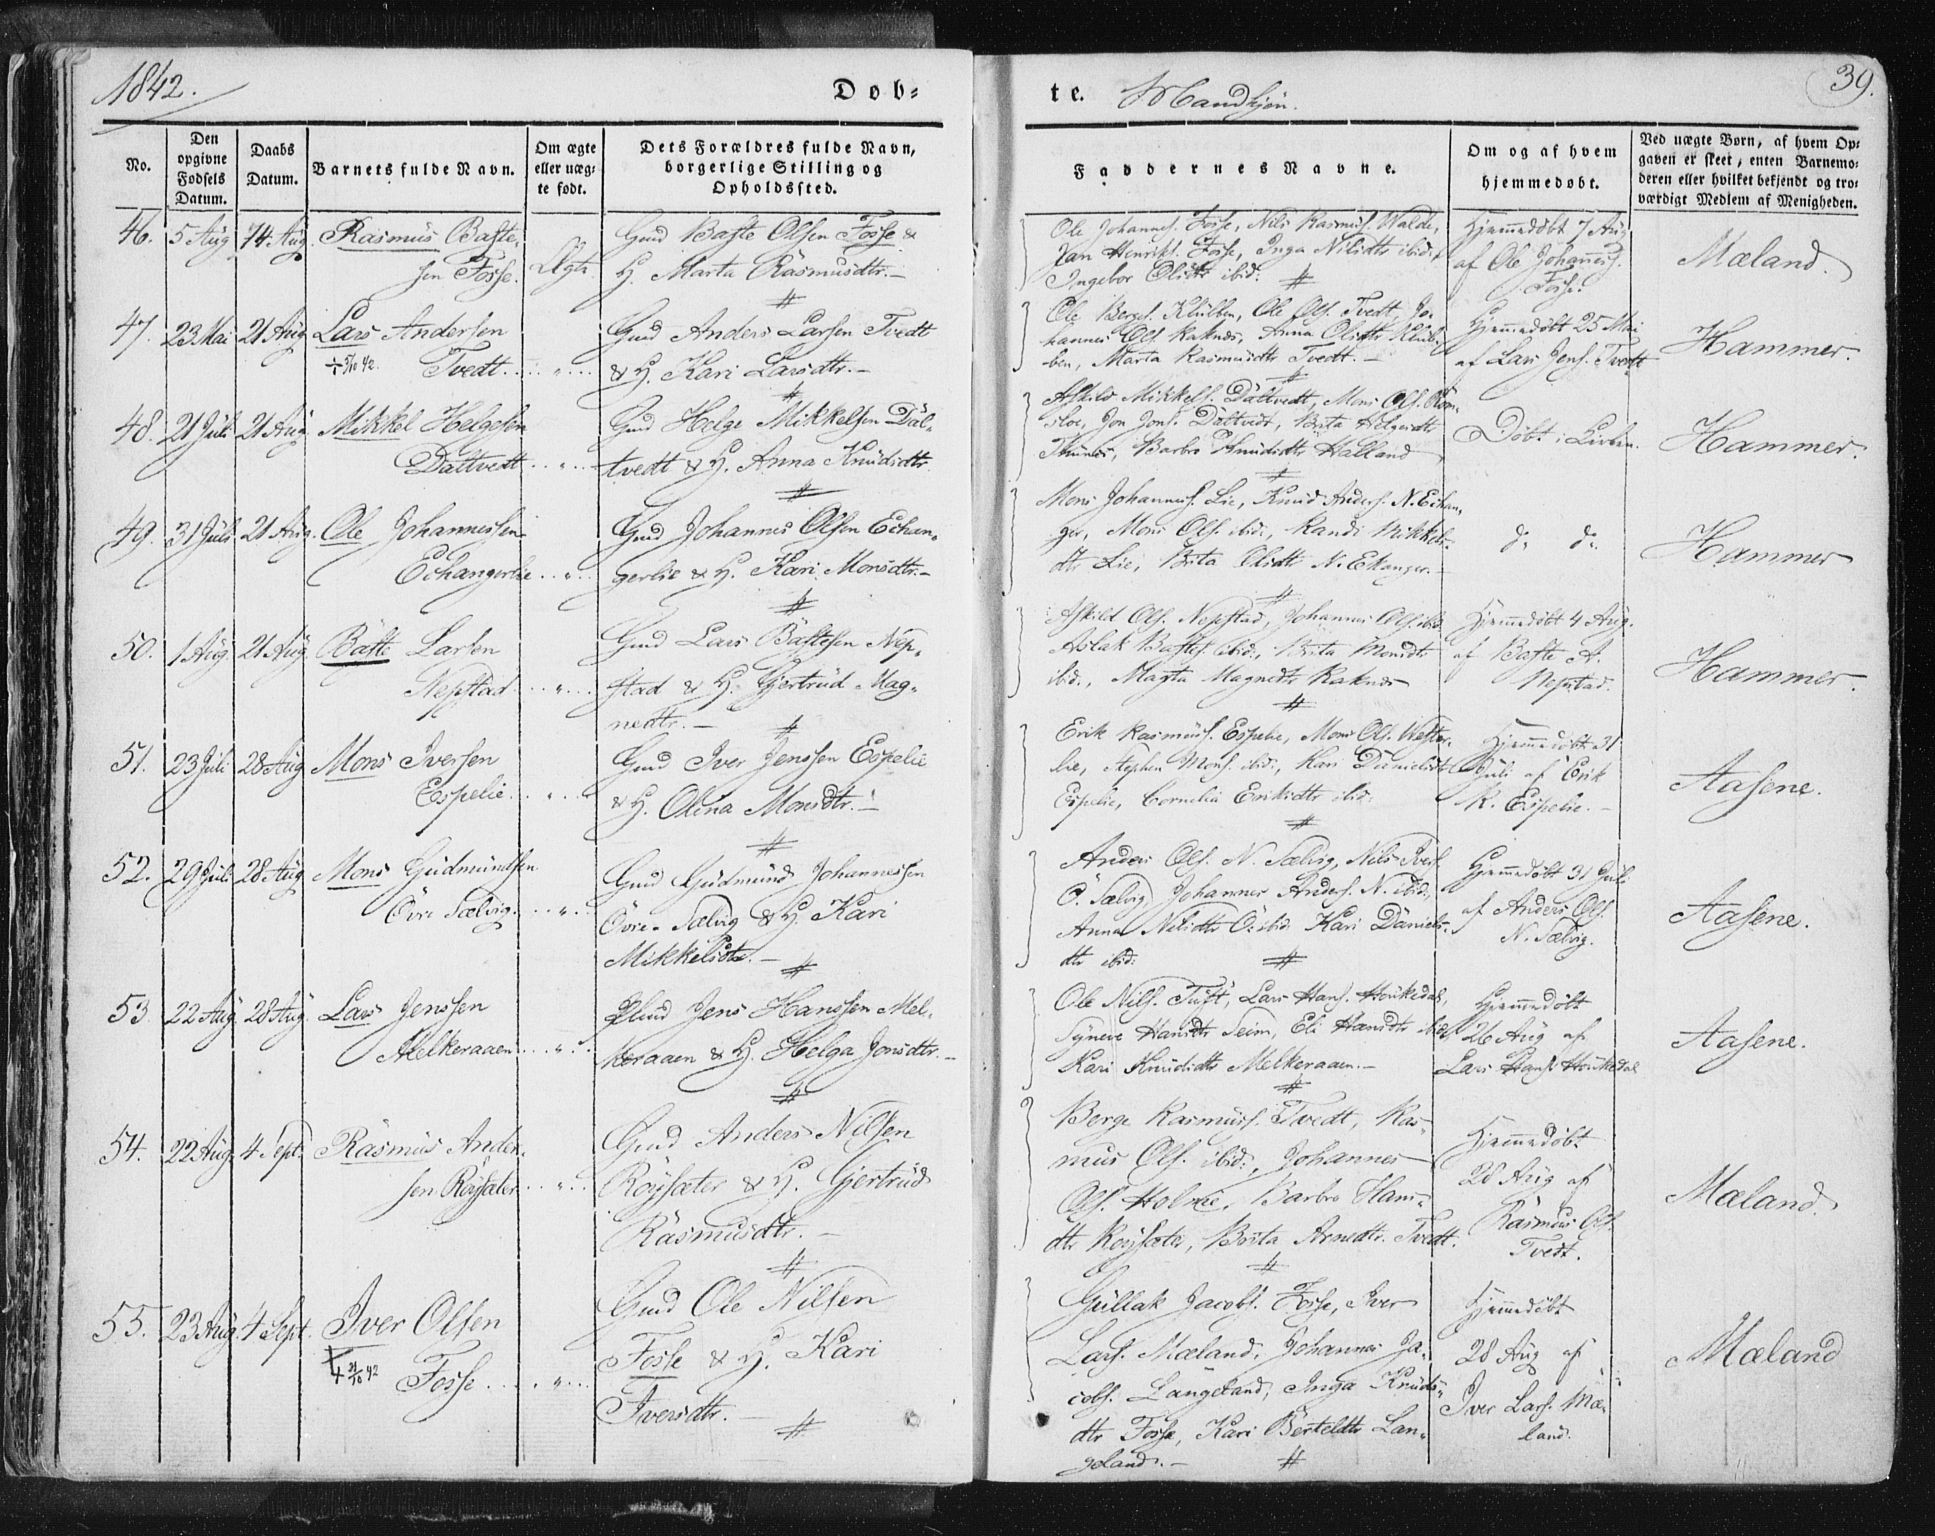 1842.
Dob=
te. Mandkjön.
39.
No.
Den opgivne Fodsels Datum.
Daabs Datum.
Barnets fulde Navn.
Om ægte eller uæg= te født.
Dets Forældres fulde Navn, borgerlige Stilling og Opholdssted.
Faddernes Navne.
Om og af hvem hjemmedøbt.
Ved uægte Børn, af hvem Op= gaven er skeet, enten Barnemo= deren eller hvilket bekjendt og tro= værdigt Medlem af Menigheden.
46. 5 Aug 14 Aug. Rasmus Baste= Gmd Baste Olsen Fosse &
sen Fosse. Ægte. H. Marta Rasmusdtr.—
Ole Johannes. Fosse, Nils Rasmus. Walde,
Jan Henriks. Fosse, Inga Nilsdtr ibid.,
Ingebor Olsdtr ibid.
Hjemmedøbt 7 Aug
af Ole Johannes.
Fosse.
Mæland.
47. 23 Mai 21 Aug Lars Andersen Gmd Anders Larsen Tvedt
Tvedt. „ & H. Kari Larsdtr.—
Ole Berges. Klubben, Ole Ols. Tvedt, Jo=
hannes Ols. Raknes, Anna Olsdtr Klub=
ben, Marta Rasmusdtr Tvedt.—
Hjemmedøbt 25 Mai
af Lars Jens. Tvedt
Hammer.
48. 21 Juli 21 Aug Mikkel Helgesen Gmd Helge Mikkelsen Dal=
Daltvedt „ tvedt & H. Anna Knudsdtr
Askild Mikkels. Daltvedt, Mons Ols. Rom=
sloe, Jon Jons. Daltvedt, Brita Helgesdtr
Barbro Knudsdtr Halland
Døbt i Kirken.
Hammer.
49. 31 Juli 21 Aug. Ole Johannessen Gmd Johannes Olsen Echan=
Echangerlie „ gerlie & H. Kari Monsdtr.—
Mons Johannes. Lie, Knud Anders. N. Echan=
ger, Mons Ols. ibid., Randi Mikkels=
dtr Lie, Brita Olsdtr N. Ekanger.—
do do
Hammer
50. 1 Aug 21 Aug. Baste Larsen Gmd Lars Bastesen Nep=
Nepstad „ stad & H. Gjertrud Mag=
nedtr.—
Askild Ols. Nepstad, Johannes Ols. ibid
Aslak Bastes. ibid., Brita Monsdtr
ibid., Marta Magnedtr Raknes
Hjemmedøbt 4 Aug.
af Baste A.
Nepstad.
Hammer.
51. 23 Juli 28 Aug Mons Iversen Gmd Iver Jenssen Espelie
Espelie. „ & H. Olina Monsdtr.—
Erik Rasmus. Espelie, Mons Ols. Wester=
lie, Stephen Mons. ibid., Kari Danielsdtr
Espelie, Cornelia Eriksdtr ibid.
Hjemmedøbt 31
Juli af Erik
R. Espelie.—
Aasene.
52. 29 Juli 28 Aug Mons Gudmundsen Gmd Gudmund Johannessen
Övre Sælvig. „ Övre-Sælvig & H. Kari
Mikkelsdtr.—
Anders Ols. N. Sælvig, Nils Ivers.
Ö. Sælvig, Johannes Anders. N. ibid.,
Anna Nilsdtr Ö. ibid. Kari Daniels=
dtr ibid.
Hjemmedøbt 31 Juli
af Anders Ols.
N. Sælvig.
Aasene.
53. 22 Aug. 28 Aug. Lars Jenssen Jens Hanssen Mel=
Melkeraaen „ keraaen & H. Helga Jonsdtr.—
Ole Nils. Tuft, Lars Hans. Houkedal,
Syneve Hansdtr Seim, Eli Hansdtr ibid.
Kari Knudsdtr Melkeraaen.—
Hjemmedøbt
26 Aug af
Lars Hans. Houkedal
Aasene.
54. 22 Aug. 4 Sept. Rasmus Ander= Gmd Anders Nilsen
sen Röysæter „ Röysæter & H. Gjertrud
Rasmusdtr.—
Berge Rasmus. Tvedt, Ras=
mus Ols. ibid., Johannes
Ols. Holme, Barbro Hans=
dtr Röysæter, Brita Arnedtr. Tvedt.
Hjemmedøbt
28 Aug af
Rasmus Ols.
Tvedt.
Mæland.
55. 23 Aug. 4 Sept. Iver Olsen Gmd Ole Nilsen
Fosse „ Fosse & H. Kari
Iversdtr.—
Gullak Jacobs. Fosse, Iver
Lars. Mæland, Johannes Ja=
cobs. Langeland, Inga Knuds=
dtr Fosse, Kari Berteldtr Lan=
geland.—
Hjemmedøbt
28 Aug af
Iver Lars. Mæ=
land.
Mæland